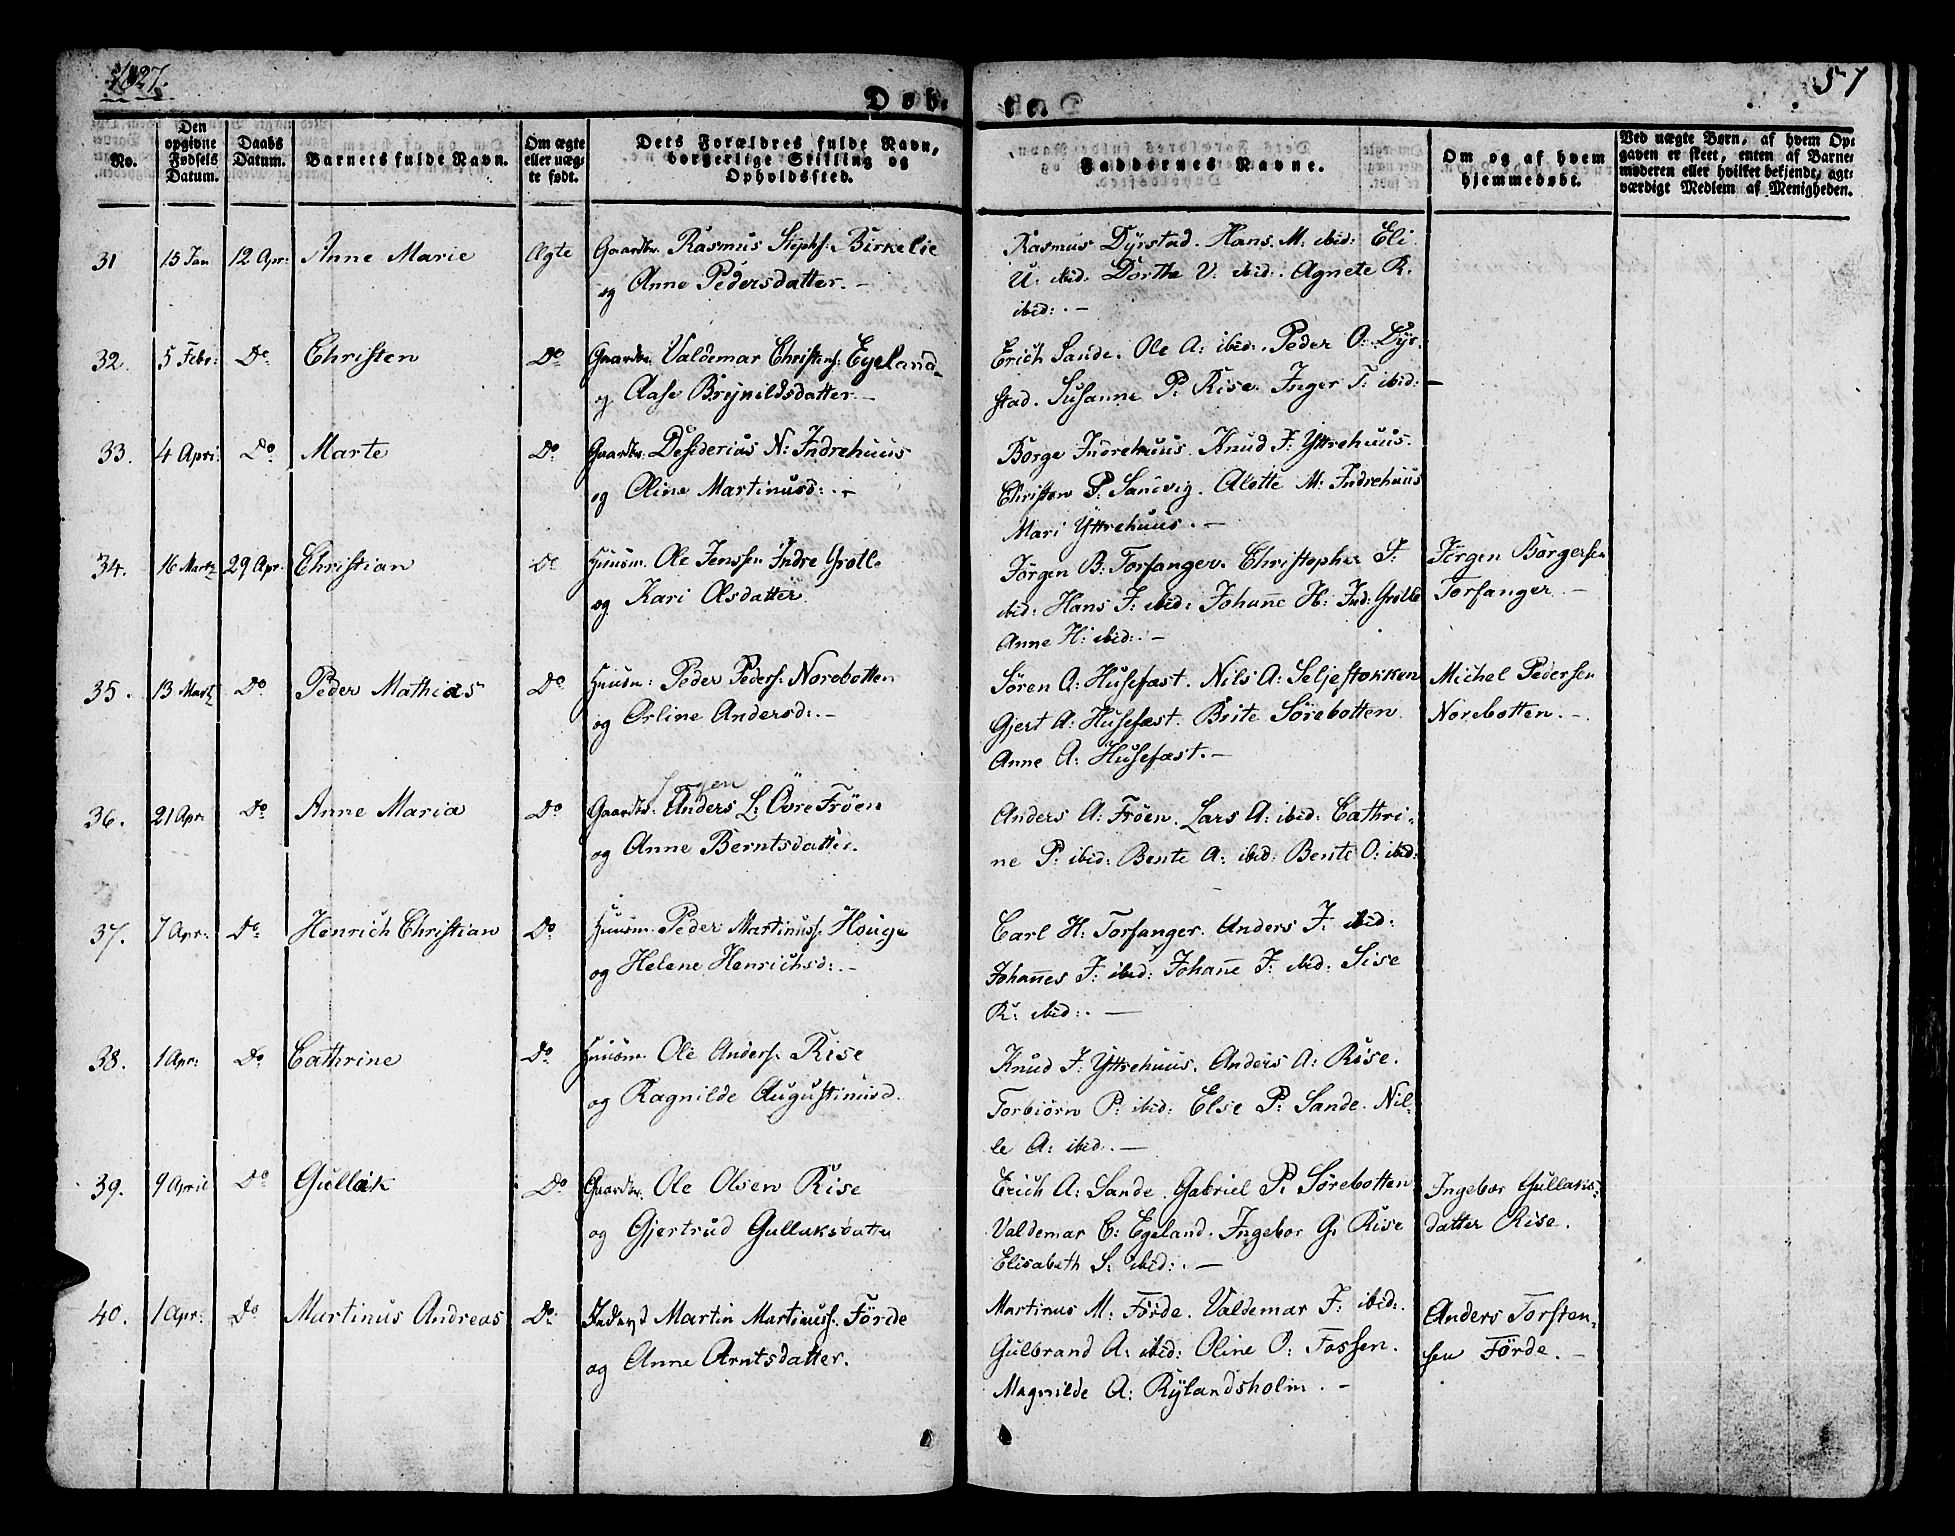 1827.
57
Døb-
te.
No.
Den opgivne Fødsels Datum.
Daabs Datum.
Barnets fulde Navn.
Om ægte eller uæg-te født.
Dets Forældres fulde Navn, borgerlige Stilling og Opholdsfted.
Faddernes Navne.
Om og af hvem hjemmedøbt.
Ved uægte Børn, af hvem Op-gaven er skeet, enten af Barne-moderen eller hvilket bekjendt, agt-værdigt Medlem af Menigheden.
31 15 Jan 12 Apr: Anne Marie Ægte Gaardbr. Rasmus Steph: Birkelie
og Anne Pedersdatter. -
Rasmus Dyrstad. Hans. M: ibid: Eli
U: ibid. Dorthe V: ibid: Agnete R.
ibid:. -
32. 5 Febr: Do Christen Do Gaardbr. Valdemar Christens: Egeland
og Aase Brynildsdatter -
Erich Sande. Ole A: ibid:. Peder O: Dyr-
stad. Susanne P: Rise. Inger T: ibid: -
33. 4 Apri: Do Marte Do Gaardbr. Desiderius N: Indrehuus
og Oline Martinusd:. -
Børge Indrehuus. Knud J: Yttrehuus.
Christen P: Sandvig. Alette M: Indrehuus
Mari Yttrehuus. -
34. 16 Martz 29 Apr. Christian Do Huusm. Ole Jenssen Indre Grotle
og Kari Olsdatter
Jørgen B: Torfanger. Christopher J:
ibid: Hans J: ibid: Johanne H: Ind: Grotle
Anne H: ibid:. -
Jørgen Børgersen
Torfanger. -
35. 13 Martz Do Peder Mathias Do Huusm: Peder Peders: Norebotten
og Orline Andersd:. -
Søren A: Husefæst. Nils A: Seljestokken
Gjert A: Husefæst. Brite Sørebotten
Anne A: Husefæst. -
Michel Pedersen
Norebotten. -
Jørgen
36. 21 Apr: Do Anne Maria Do Gaardbr: Anders L: Övre Fröen
og Anne Berntsdatter.
Anders A: Fröen. Lars A: ibid: Cathri-
ne P: ibid: Bente A: ibid: Bente O: ibid:
37. 7 Apr: Do Henrich Christian Do Huusm. Peder Martinuss: Houge
og Helene Henrichsd:. -
Carl H: Torfanger. Anders J: ibid:
Johannes J: ibid: Johanne J: ibid: Sise
R: ibid:. -
38. 1 Apr: Do Cathrine Do Huusm. Ole Anders: Rise
og Ragnilde Augustinusd.
Knud J: Yttrehuus. Anders A: Rise.
Torbiørn P: ibid: Else P: Sande. Nil-
le A: ibid:. -
39. 9 April Do Gullak Do Gaardbr. Ole Olsen Rise
og Gjertrud Gullaksdatter
Erich A: Sande. Gabriel P: Sørebotten
Valdemar C: Egeland. Ingebor G: Rise
Elisabeth S: ibid:. -
Ingebor Gullaks-
datter Rise.
40. 1 Apr: Do Martinus Andreas Do Inderst Martin Martinuss: Förde
og Anne Arntsdatter.
Martinus M: Førde. Valdemar J: ibid:
Gulbrand A: ibid: Oline O: Fossen.
Magnilde A: Rylandsholm. -
Anders Torsten-
sen Förde. -